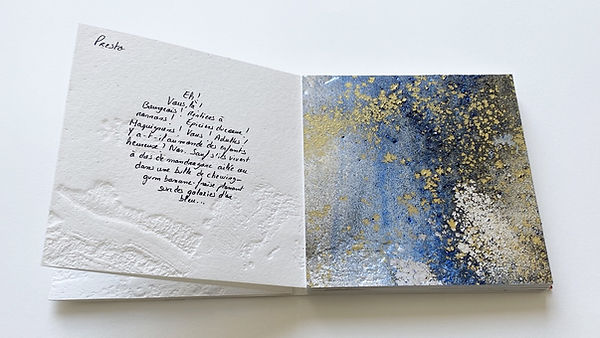 Presto
Eh!
Vous, là!
Bourgeois! Rentiers à
nannans! Epiciers d'icône!
Maquignons! Vous! Adultes!
Y a-t-il au monde des enfants
heureux? Non. Sauf s'ils vivent
à dos de mandragore ailée ou
dans une bulle de chewing-
gum banane-fraise planant
sur des galaxies d'
bleu...